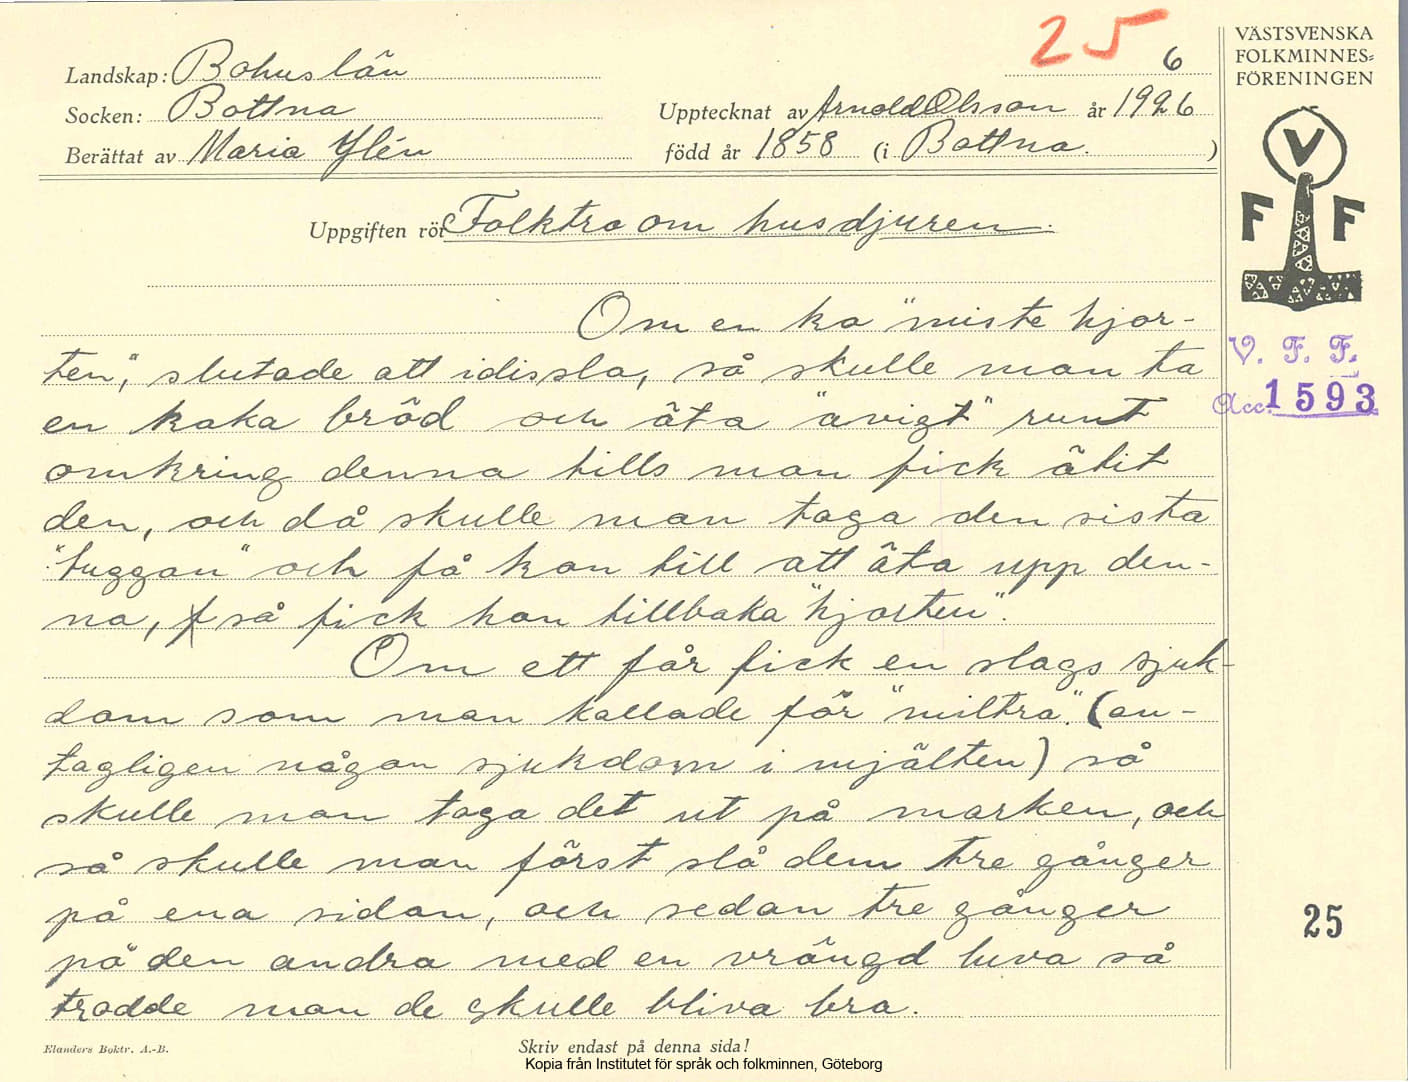 25
6
VÄSTSVENSKA
FOLKMINNES=
FÖRENINGEN
Landskap: Bohuslän
Socken: Bottna
Upptecknat av Arnold Olsson år 1926
Berättat av Maria Ylén
född år 1858 (i Bottna.)
V
F F
Uppgiften rör Folktro om husdjuren.
Om en ko "miste hjor-
ten", slutade att idissla, så skulle man ta
en kaka bröd och äta "avigt" runt
omkring denna tills man fick ätit
den, och då skulle man taga den sista
"tuggan" och få kon till att äta upp den-
na, så fick hon tillbaka "hjorten".
Om ett får fick en slags sjuk-
dom som man kallade för "miltra". (an-
tagligen någon sjukdom i mjälten) så
skulle man taga det ut på marken, och
så skulle man först slå dem tre gånger
på ena sidan, och sedan tre gånger
på den andra med en vrängd luva så
trodde man de skulle bliva bra.
V. F. F.
Acc. 1593
25
Elanders Boktr. A.-B.
Skriv endast på denna sida!
Kopia från Institutet för språk och folkminnen, Göteborg